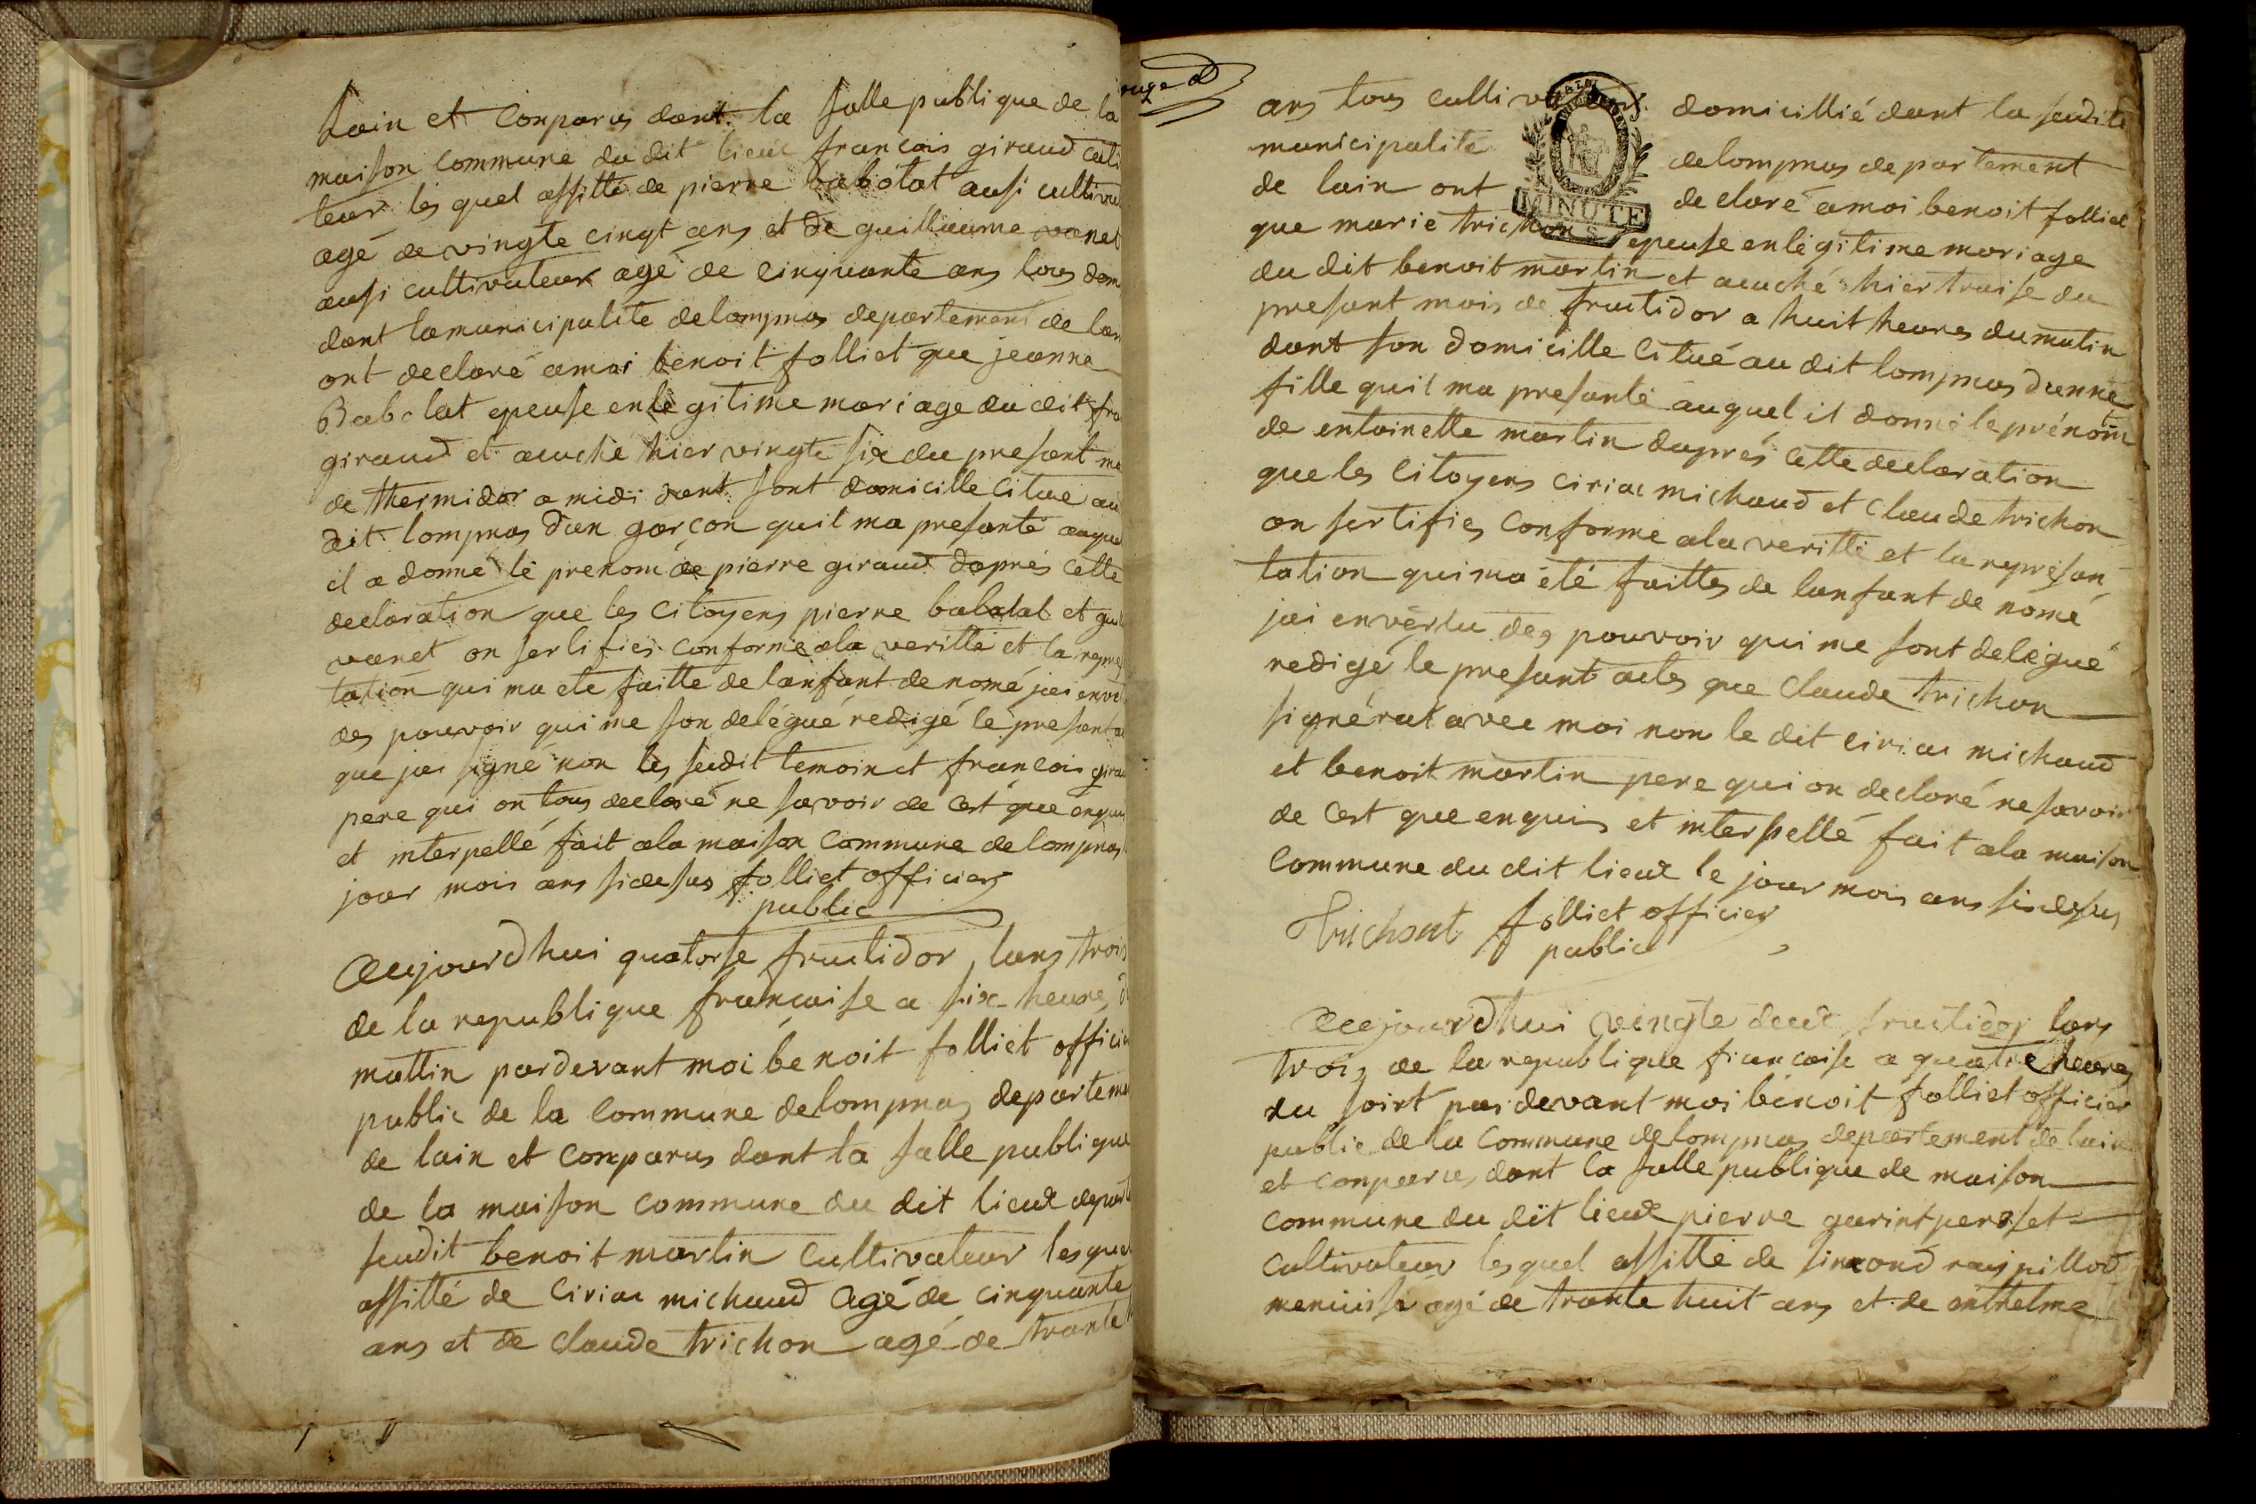 Lain et Conparus dant la salle publique de la
maison commune du dit lieux francois giraud culti
teur les quel assitté de pierre babolat ausi cultiva
agé de vingte cinqt ans et de guilliaume vanet
ausi cultivateur agé de cinquante ans tous dom
dant la municipalite delompnas departement de lain
ont declaré amoi benoit folliet que jeanne
Babolat epeuse en le gitime mariage du dit fra
giraud et acuché hier vingte six du presant mo
de thermidor a midi dant sont domicille citue au
dit lompnas dun garcon quil ma presanté auquel
il a donné le prenom de pierre giraud daprés cette
declaration que les citoyens pierre babolat et guil
vanet on sertifies conforme ala veritté et la repre
tation qui ma eté faitte de lanfant de nomé jai enve
des pouvoir qui me son delégué redigé le presant a
que jai signé non les sudit temoin et francois girau
pere qui on tous declaré ne savoir de cest que enqui
et interpellé fait ala maison commune de lompnas
jour mois ans sidesus folliet officier
public
Aujourdhui quatorse fructidor lans trois
de la republique francaise a six heures d
mattin pardevant moi bénoit folliet officier
public de la commune delompnas departeme
de lain et conparus dant la salle publique
de la maison commune du dit lieux depart
sudit benoit martin cultivateur lesquel
assitté de Ciriac michaud agé de cinquante
ans et de claude trichon agé de trante
ans tous cultivateurs domicillié dant la sudite
municipalite delompnas departement
de lain ont declaré amoi benoit folliet
MINUTE
que marie trichon epeuse enlégitime mariage
du dit benoit martin et acuché hier traise du
presant mois de fructidor a huit heures dumatin
dant son domicille citué au dit lompnas dunne
fille quil ma presanté auquel il donné le prénom
de entoinette martin daprés cette declaration
que les citoyens ciriac michaud et claude trichon
on sertifies conforme ala veritté et la représan
tation qui ma été faittes de lanfant de nomé
jai envértu des pouvoir qui me sont delégué
redigé le presant actes que claude trichon
signérat avec moi non le dit ciriac michaud
et benoit martin pere qui on declaré ne savoir
de cest que enquis et interpellé fait ala maison
commune du dit lieux le jour mois ans sidesus
Trichont folliet officier
public
Aujourdhui vingte deux fructidor lans
trois de la republique francaise a quatre heures
du soirt par devant moi bénoit folliet officier
public de la commune delompnas departement de lain
et conparus dant la salle publique de maison
commune du dit lieux pierre garint perset
cultivateur lesquel assitté de
menuisié agé de trante huit ans et de enthelme